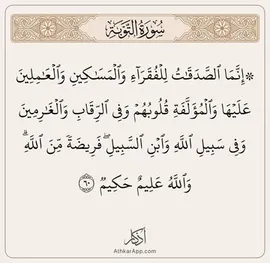 سُورَةُ التَّوۡبَةِ
۞ إِنَّمَا ٱلصَّدَقَٰتُ لِلۡفُقَرَآءِ وَٱلۡمَسَٰكِينِ وَٱلۡعَٰمِلِينَ
عَلَيۡهَا وَٱلۡمُؤَلَّفَةِ قُلُوبُهُمۡ وَفِي ٱلرِّقَابِ وَٱلۡغَٰرِمِينَ
وَفِي سَبِيلِ ٱللَّهِ وَٱبۡنِ ٱلسَّبِيلِۖ فَرِيضَةٗ مِّنَ ٱللَّهِۗ
وَٱللَّهُ عَلِيمٌ حَكِيمٞ ٦٠
أذكار
AthkarApp.com